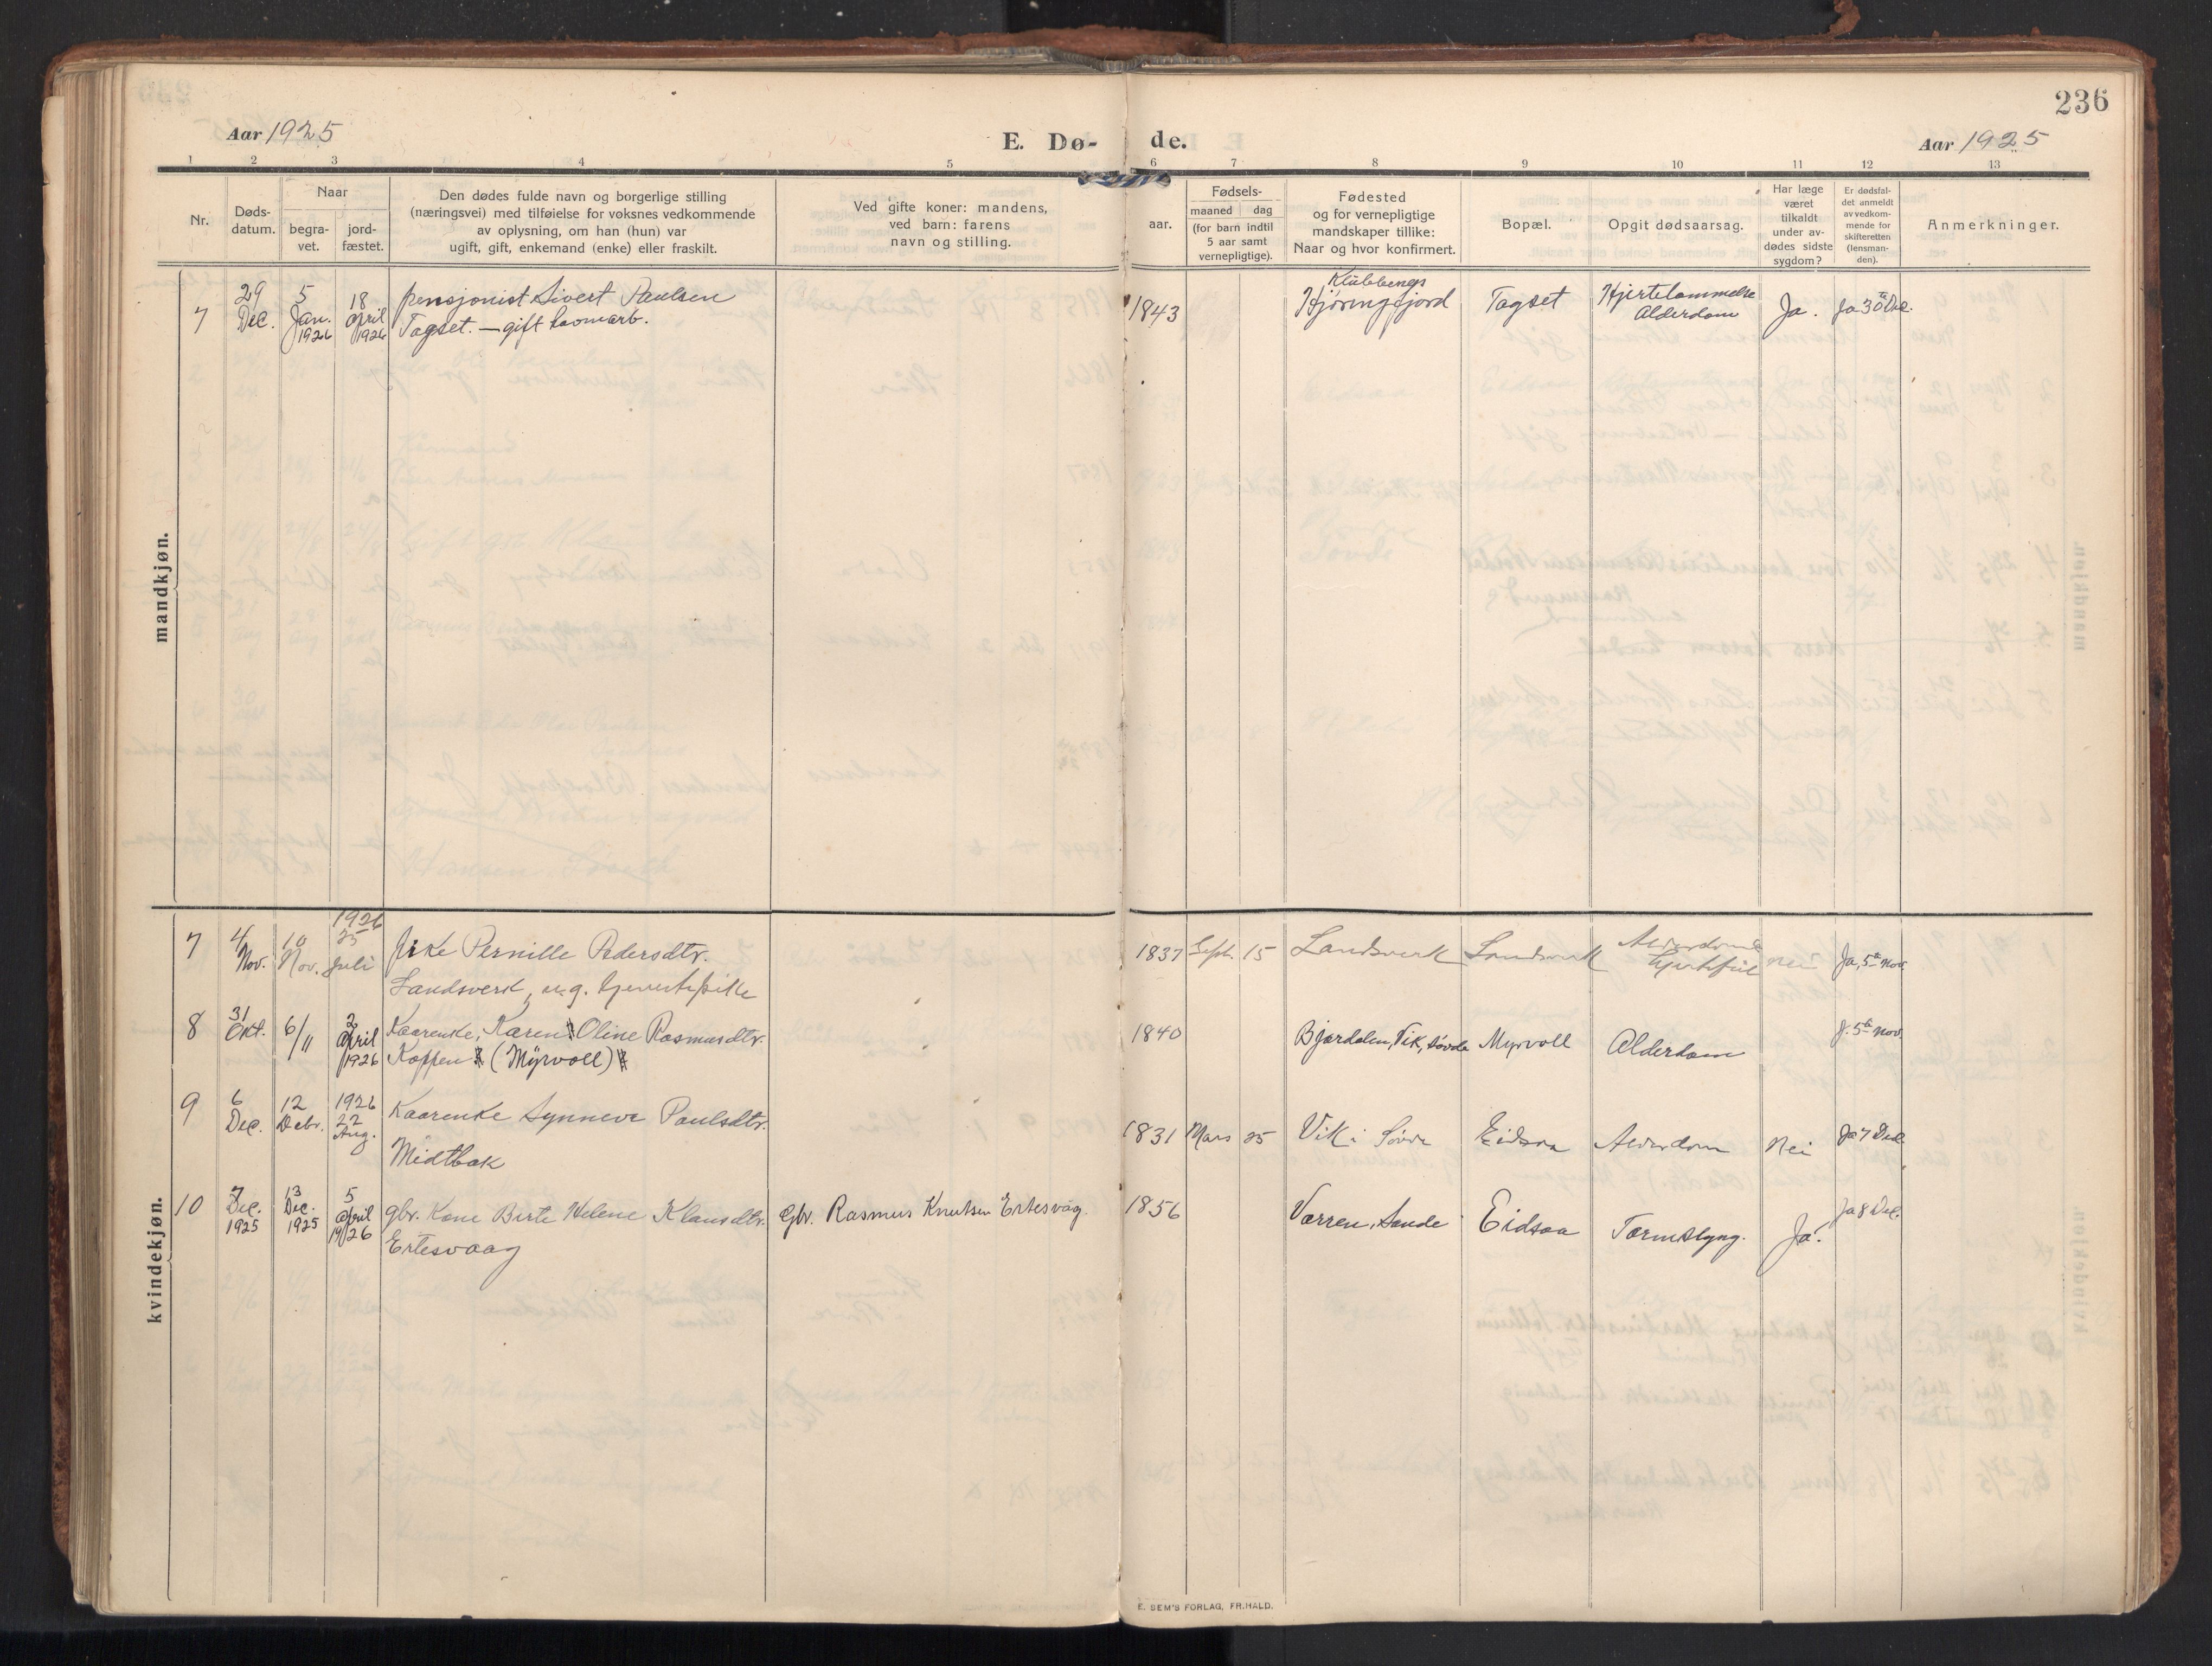 236
Aar 1925
E. Dø-
de.
Aar 1925
1 2 3 4 5 6 7 8 9 10 11 12 13
Nr.
Døds-
datum.
Naar
begra-
vet.
jord-
fæstet.
Den dødes fulde navn og borgerlige stilling
(næringsvei) med tilføielse for voksnes vedkommende
av oplysning, om han (hun) var
ugift, gift, enkemand (enke) eller fraskilt.
Ved gifte koner: mandens,
ved barn: farens
navn og stilling.
aar.
Fødsels-
maaned dag
(for barn indtil
5 aar samt
vernepligtige).
Fødested
og for vernepligtige
mandskaper tillike:
Naar og hvor konfirmert.
Bopæl.
Opgit dødsaarsag.
Har læge
været
tilkaldt
under av-
dødes sidste
sygdom?
Er dødsfal-
det anmeldt
av vedkom-
mende for
skifteretten
(lensman-
den).
Anmerkninger.
mandkjøn.
7
29
Dec.
5
Jan.
1926
18
April
1926
pensjonist Sivert Paulsen
Tagset. — gift
1843
Hjøringfjord
Tagset
Hjertelammelse
Alderdom
Ja.
Ja 30te Dec.
kvindekjøn.
7
4
Nov.
10
Nov.
1926
25
Juli
Pernille Pedersdtr.
Landsverk, ug.
1837 Sept. 15
Landsverk
Landsverk
Alderdom
Nei
Ja, 5te Nov.
8
31
Okt.
6/11
2
April
1926
Kaarenke, Karen Oline Rasmusdtr.
Koppen (Myrvoll)
1840
Bjørdalen, Vik, Søvde
Myrvoll
Alderdom
J. 5te Nov.
9
6
Dec.
12
Debr.
1926
22
Aug.
Kaarenke Synneve Paulsdtr.
Midtbak
1831 Mars 25
Vik i Søvde
Eidsaa
Alderdom
Nei
Ja 7 Dec
10
7
Dec.
1925
13
Dec.
1925
5
April
1926
gbr. Kone Birte Helene Klausdtr.
Ertesvaag
Gbr. Rasmus Knutsen Ertesvåg.
1856
Vørren, Sande
Eidsaa
Tarmslyng.
Ja.
Ja 8 Dec.
E. SEM'S FORLAG, FR.HALD.